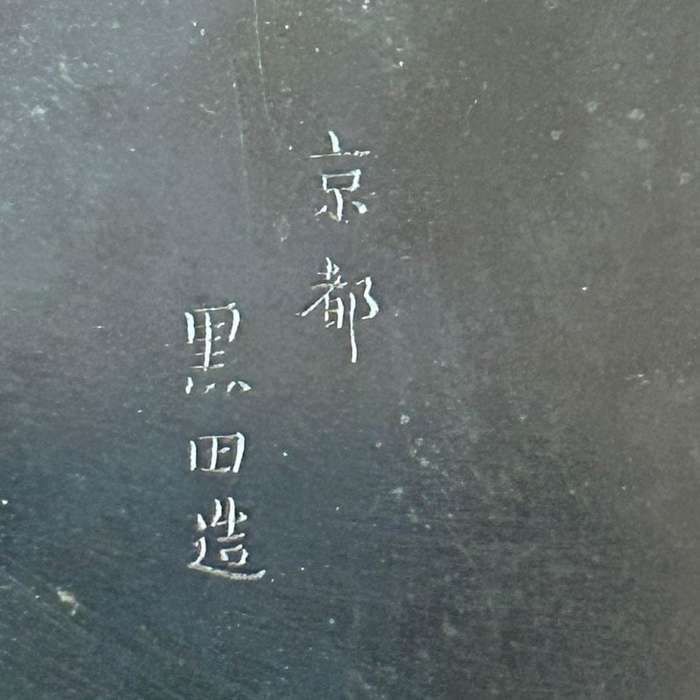 京都
黒田造